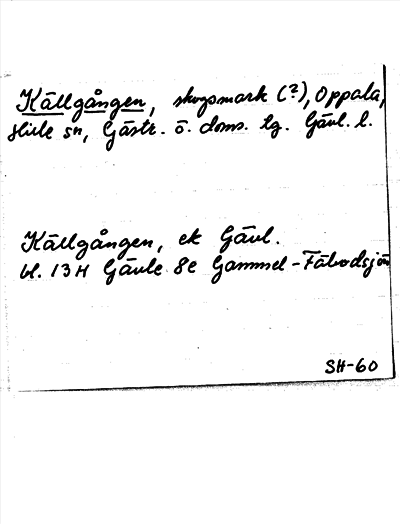 Källgången, skogsmark (?), Oppala,
Hille sn, Gästr. ö. doms. tg. Gävl. l.
Källgången, ek Gävl.
bl. 13H Gävle 8e Gammel-Fäbodsjön
SH-60